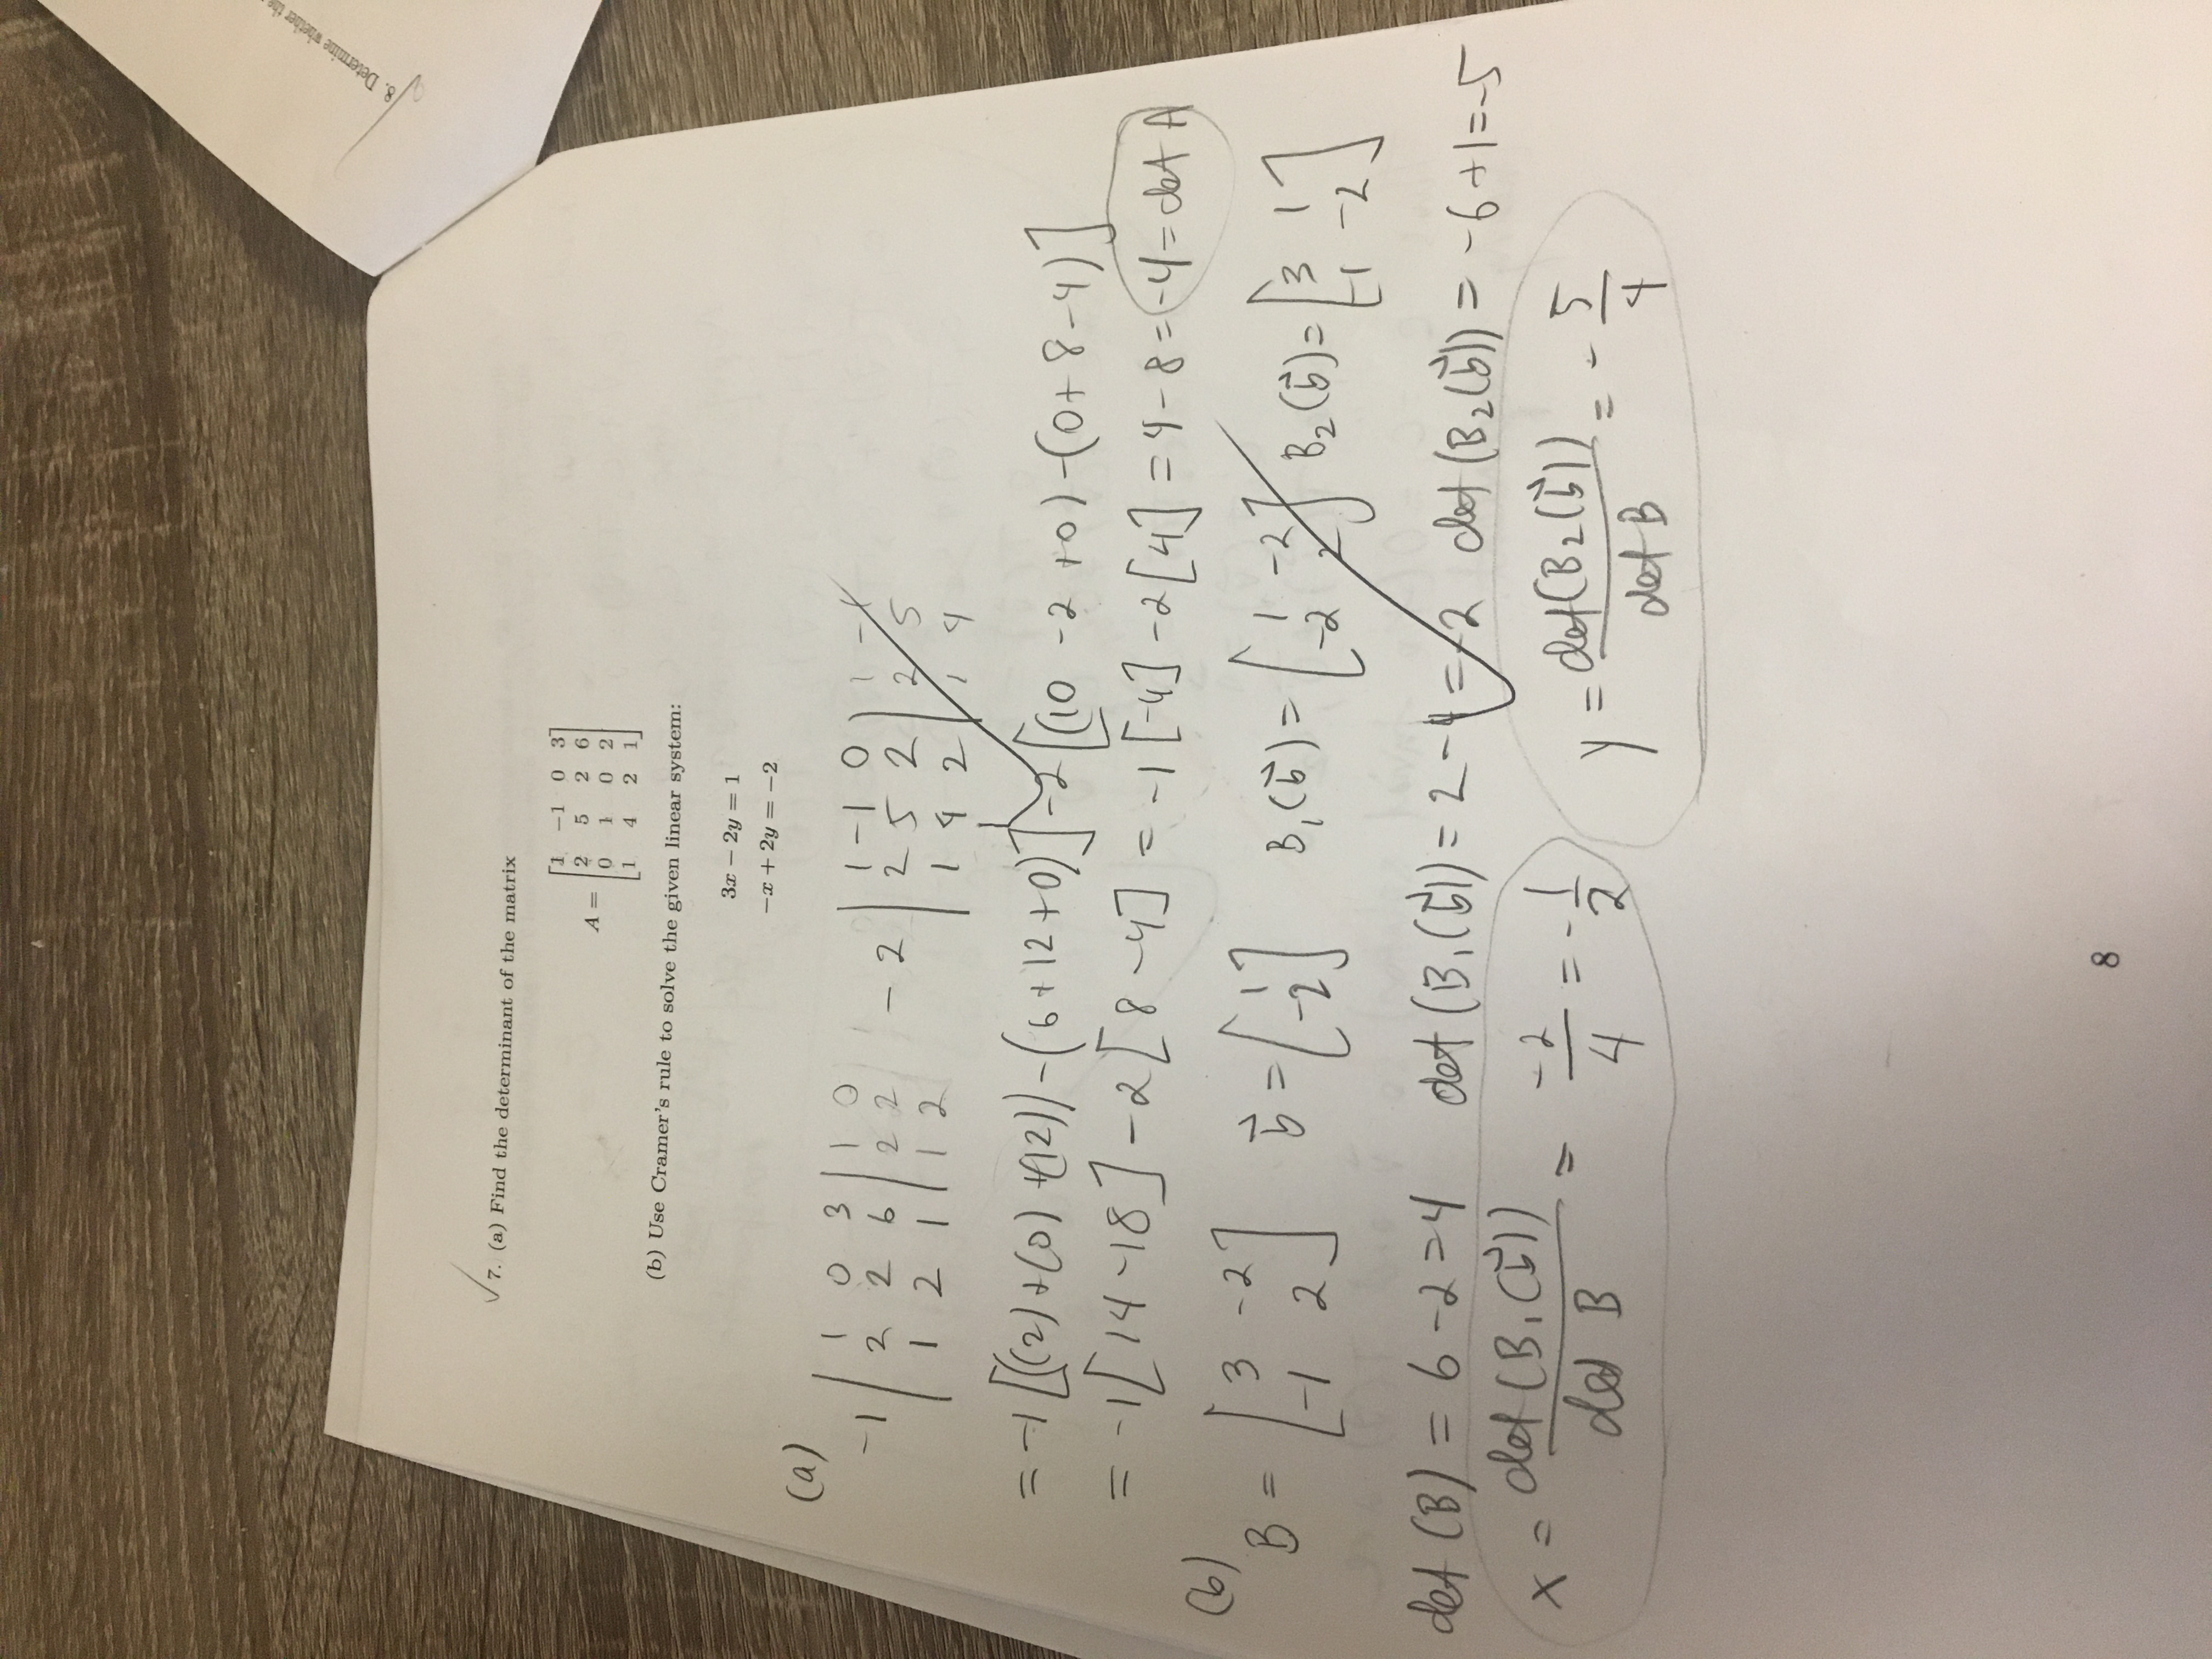 8. Determine whether the
7. (a) Find the determinant of the matrix
A = [1 −1 0 3
2 5 2 6
0 1 0 2
1 4 2 1]
(b) Use Cramer's rule to solve the given linear system:
3x − 2y = 1
−x + 2y = −2
(a)
-1 | 1 0 3 | 1 0 - 2 | 1 -1 0 | 1 -1
2 2 6 | 2 2 2 5 2 | 2 5
1 2 1 | 1 2 1 4 2 | 1 4
= -1 [((2)+(0)+(12)) - (6+12+0)] - 2 [(10 -2 +0) - (0+8-4)]
= -1 [14-18] - 2 [8-4] = -1 [-4] - 2 [4] = 4 - 8 = -4 = det A
(b)
B = [3 -2 b⃗ = [1 B₁(b⃗) = [1 -2 B₂(b⃗) = [3 1
-1 2] -2] -2 2] -1 -2]
det (B) = 6 - 2 = 4 det (B₁(b⃗)) = 2 - 4 = -2 det (B₂(b⃗)) = -6 + 1 = -5
x = det (B₁(b⃗)) / det B = -2/4 = -1/2 y = det(B₂(b⃗)) / det B = - 5/4
8